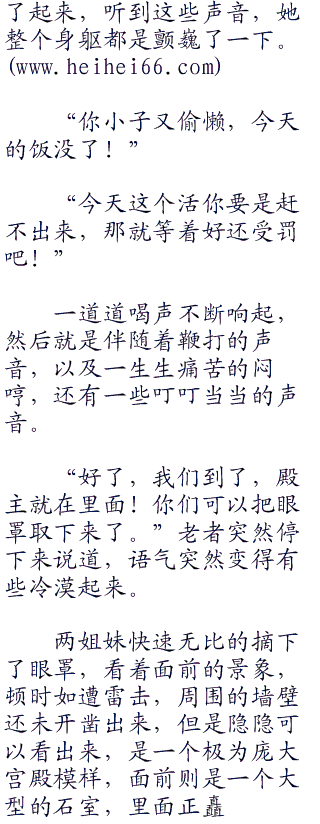 了起来，听到这些声音，她
整个身躯都是颤巍了一下。
(www.heihei66.com)
“你小子又偷懒，今天
的饭没了！”
“今天这个活你要是赶
不出来，那就等着好还受罚
吧！”
一道道喝声不断响起，
然后就是伴随着鞭打的声
音，以及一生生痛苦的闷
哼，还有一些叮叮当当的声
音。
“好了，我们到了，殿
主就在里面！你们可以把眼
罩取下来了。”老者突然停
下来说道，语气突然变得有
些冷漠起来。
两姐妹快速无比的摘下
了眼罩，看着面前的景象，
顿时如遭雷击，周围的墙壁
还未开凿出来，但是隐隐可
以看出来，是一个极为庞大
宫殿模样，面前则是一个大
型的石室，里面正矗